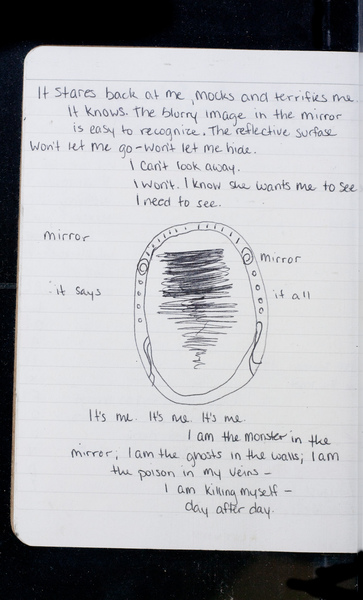 It stares back at me, mocks and terrifies me.
It knows. The blurry image in the mirror
is easy to recognize. The reflective surfase
won't let me go - won't let me hide.
I can't look away.
I won't. I know she wants me to see
I need to see.
mirror
mirror
it says
it all
It's me. It's me. It's me.
I am the monster in the
mirror; I am the ghosts in the walls; I am
the poison in my veins -
I am killing myself -
day after day.